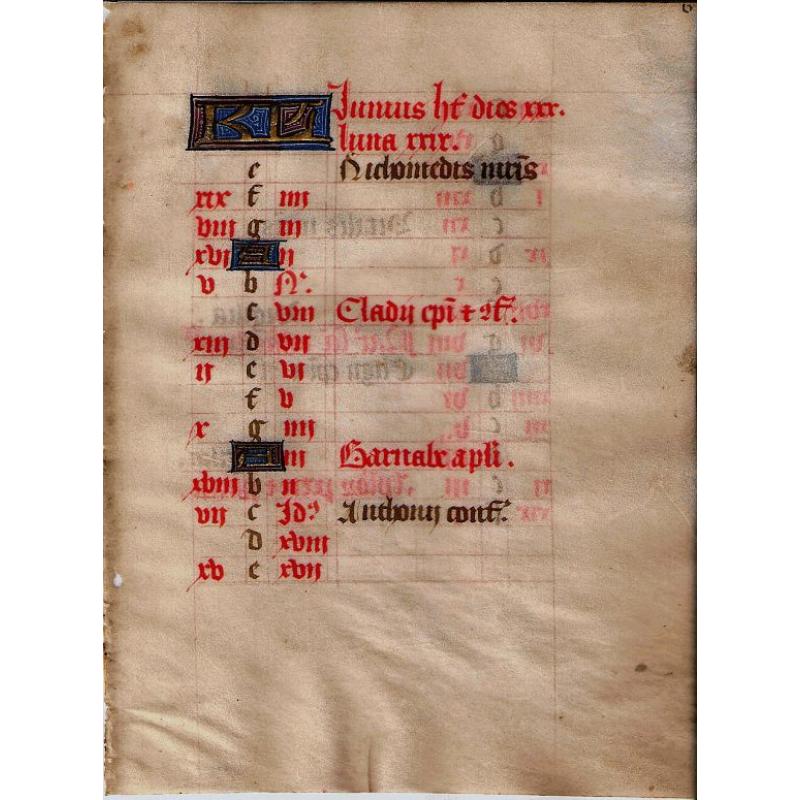 KL Junius ht dies xxx.
luna xxix.
e Nichomedis mris
xix f iiij
viij g iij
xvj A ij
v b N.
c viij Cladij epi
xiij d vij
ij e vj
f v
x g iiij
A iij Barnabe apli.
xviij b ij
vij c Id Anthonij conf.
d xviij
xv e xvij